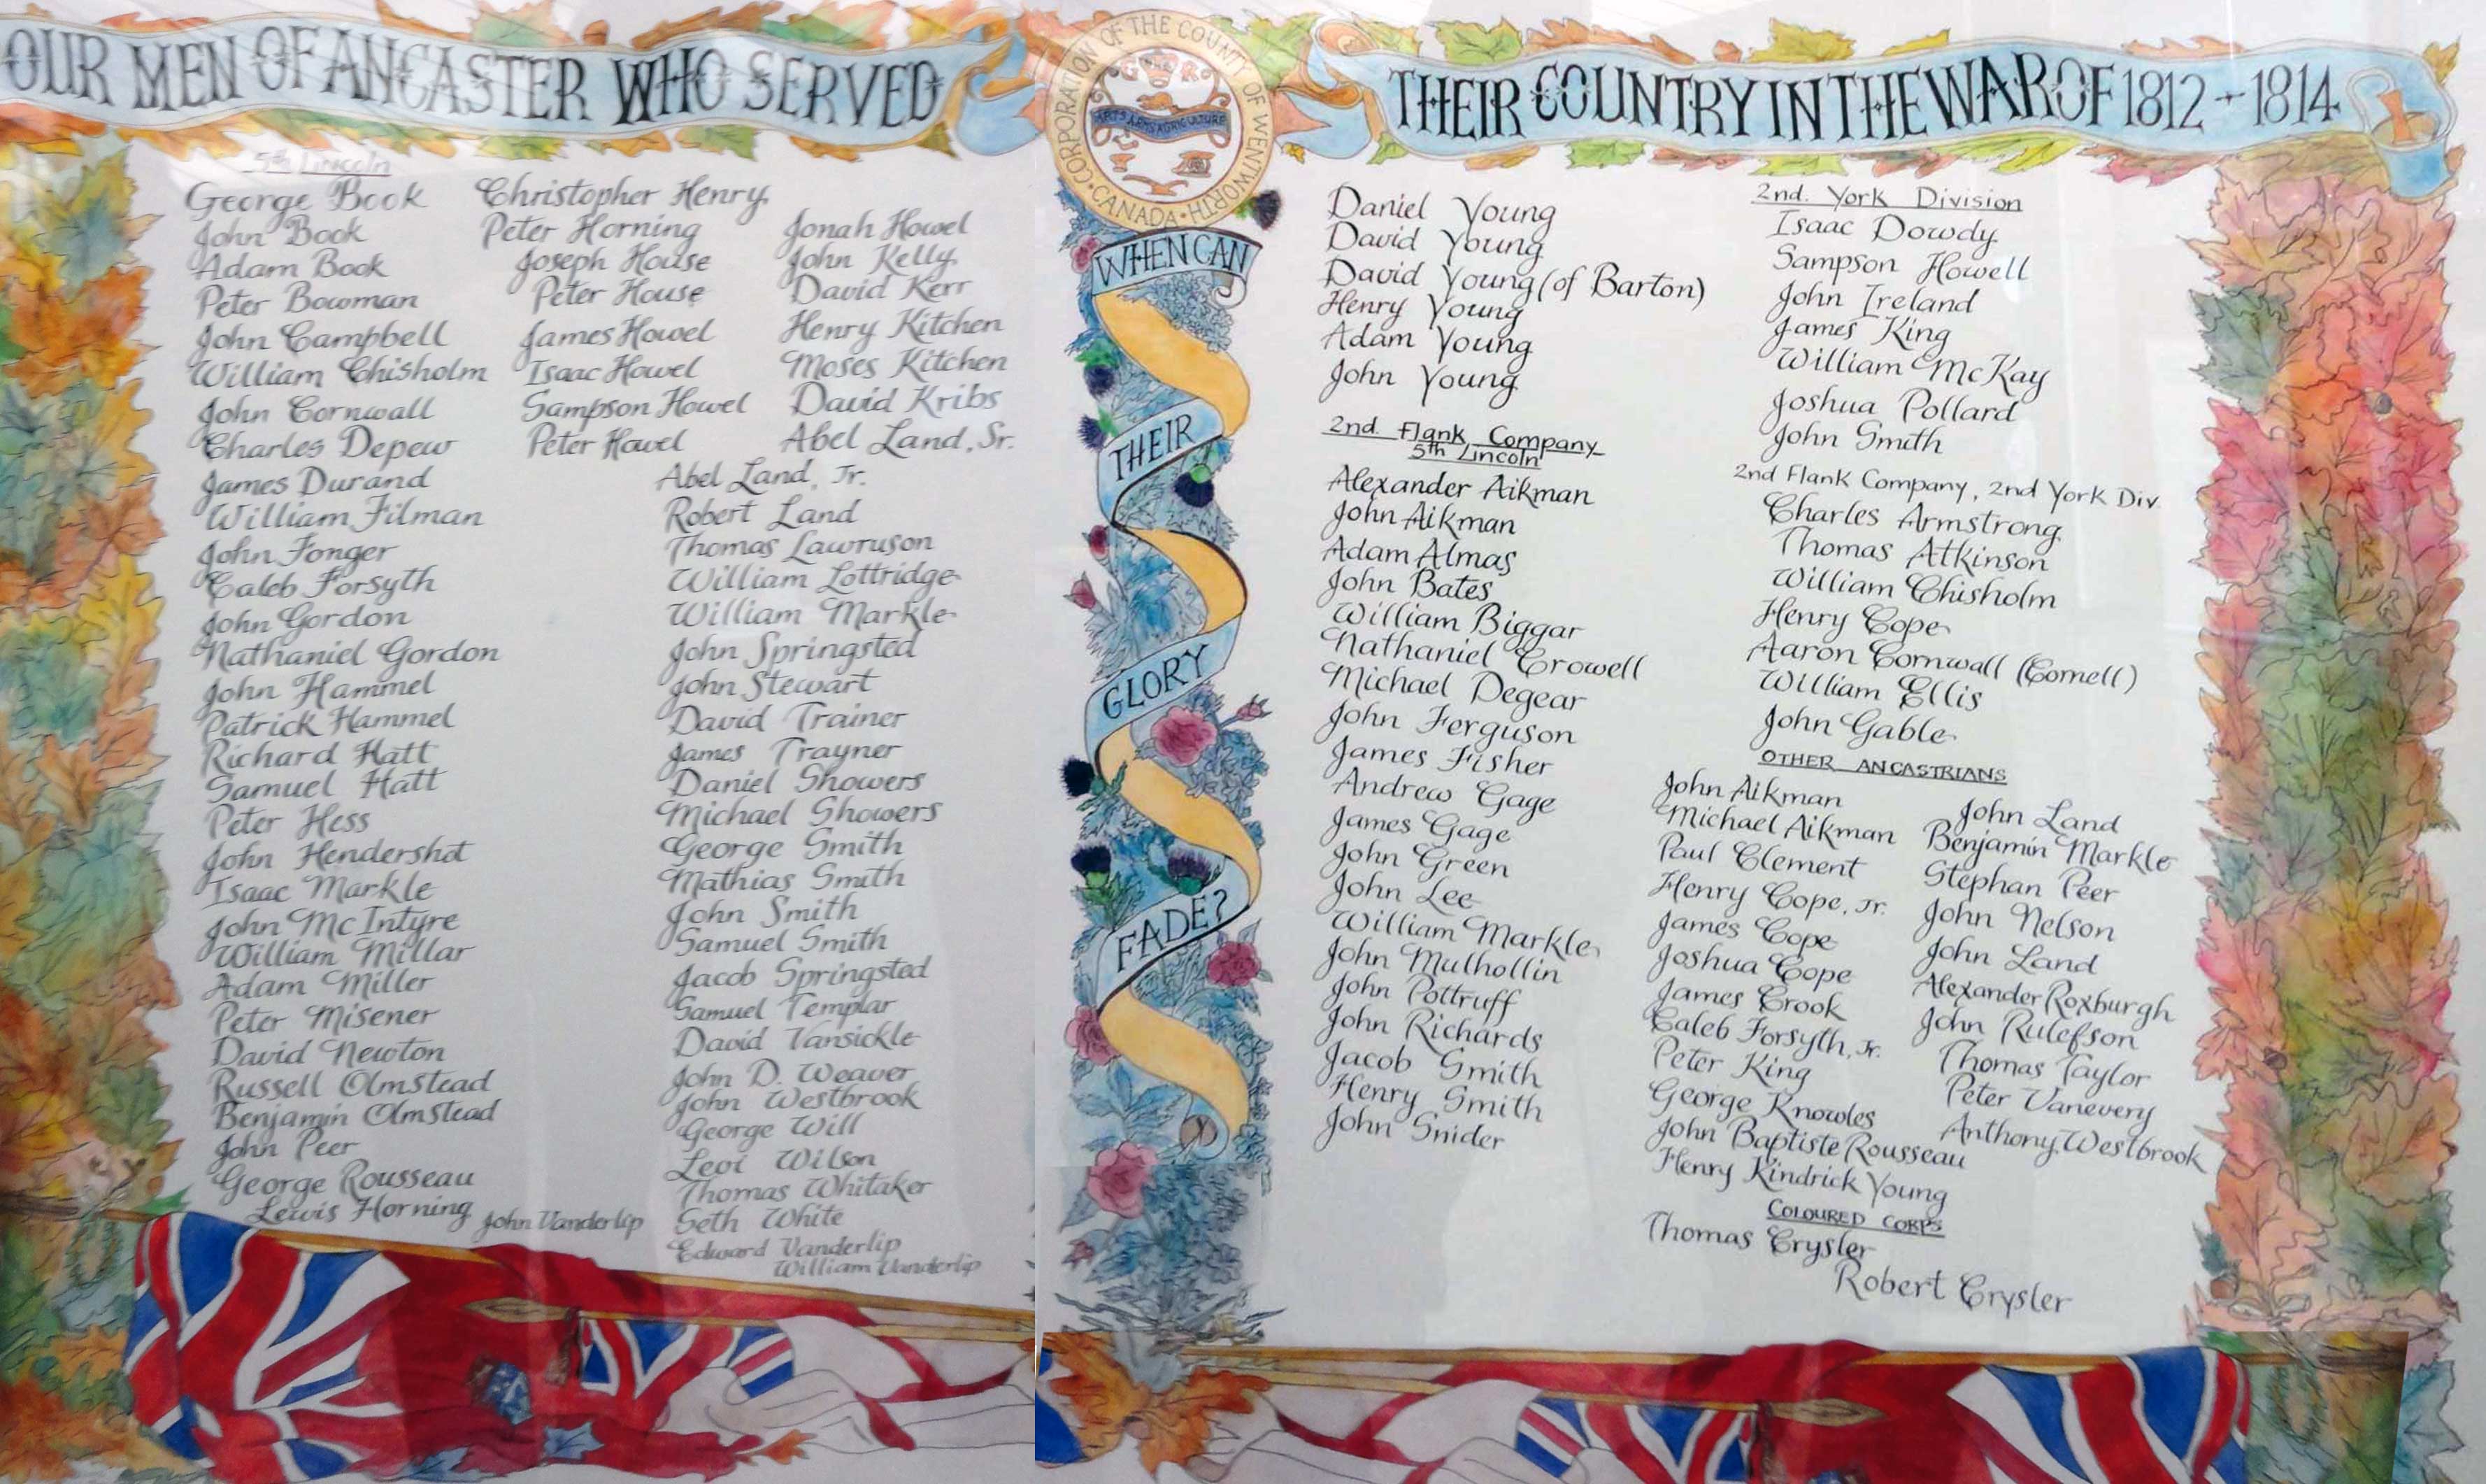 OUR MEN OF ANCASTER WHO SERVED
THEIR COUNTRY IN THE WAR OF 1812-1814
CORPORATION OF THE COUNTY OF WENTWORTH
CANADA
G R
ARTS ARMS AGRICULTURE
WHEN CAN
THEIR
GLORY
FADE?
5th Lincoln
George Book
John Book
Adam Book
Peter Bowman
John Campbell
William Chisholm
John Cornwall
Charles Depew
James Durand
William Filman
John Fonger
Caleb Forsyth
John Gordon
Nathaniel Gordon
John Hammel
Patrick Hammel
Richard Hatt
Samuel Hatt
Peter Hess
John Hendershot
Isaac Markle
John McIntyre
William Millar
Adam Miller
Peter Misener
David Newton
Russell Olmstead
Benjamin Olmstead
John Peer
George Rousseau
Lewis Horning
John Vanderlip
Christopher Henry
Peter Horning
Joseph House
Peter House
James Howel
Isaac Howel
Sampson Howel
Peter Howel
Jonah Howel
John Kelly
David Kerr
Henry Kitchen
Moses Kitchen
David Kribs
Abel Land, Sr.
Abel Land, Jr.
Robert Land
Thomas Lawruson
William Lottridge
William Markle
John Springsted
John Stewart
David Trainer
James Trayner
Daniel Showers
Michael Showers
George Smith
Mathias Smith
John Smith
Samuel Smith
Jacob Springsted
Samuel Templar
David Vansickle
John D. Weaver
John Westbrook
George Will
Levi Wilson
Thomas Whitaker
Seth White
Edward Vanderlip
William Vanderlip
Daniel Young
David Young
David Young (of Barton)
Henry Young
Adam Young
John Young
2nd. Flank Company
5th Lincoln
Alexander Aikman
John Aikman
Adam Almas
John Bates
William Biggar
Nathaniel Crowell
Michael Degear
John Ferguson
James Fisher
Andrew Gage
James Gage
John Green
John Lee
William Markle
John Mulhollin
John Pottruff
John Richards
Jacob Smith
Henry Smith
John Snider
2nd. York Division
Isaac Dowdy
Sampson Howell
John Ireland
James King
William McKay
Joshua Pollard
John Smith
2nd Flank Company, 2nd York Div.
Charles Armstrong
Thomas Atkinson
William Chisholm
Henry Cope
Aaron Cornwall (Cornell)
William Ellis
John Gable
OTHER ANCASTRIANS
John Aikman
Michael Aikman
Paul Clement
Henry Cope, Jr.
James Cope
Joshua Cope
James Crook
Caleb Forsyth, Jr.
Peter King
George Knowles
John Baptiste Rousseau
Henry Kindrick Young
John Land
Benjamin Markle
Stephan Peer
John Nelson
John Land
Alexander Roxburgh
John Rulefson
Thomas Taylor
Peter Vanevery
Anthony Westbrook
COLOURED CORPS
Thomas Crysler
Robert Crysler